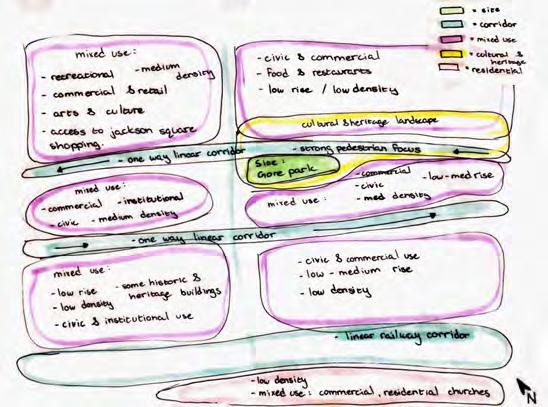 = site
= corridor
= mixed use
= cultural &
heritage
= residential
mixed use:
- recreational - medium
density
- commercial & retail
- arts & culture
- access to jackson square
shopping.
- civic & commercial
- food & restaurants
- low rise / low density
cultural & heritage landscape
- one way linear corridor
- strong pedestrian focus
site:
Gore park
mixed use:
- commercial - institutional
- civic - medium density
- commercial - low-med rise
- civic
mixed use: - med density
- one way linear corridor
mixed use:
- low rise - some historic &
- low density heritage buildings
- civic & institutional use
- civic & commercial use
- low - medium rise
- low density
- linear railway corridor
- low density
- mixed use: commercial, residential churches
N